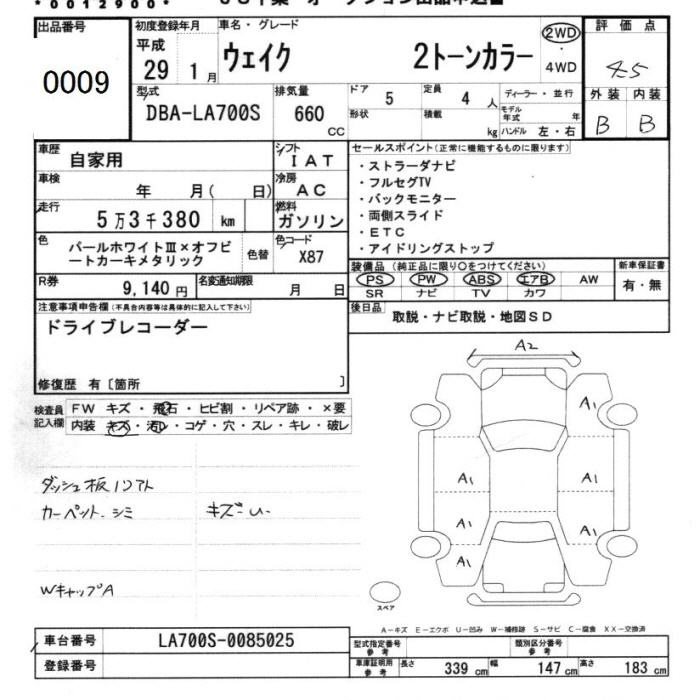 *0012900*
出品番号
0009
初度登録年月
平成
29 1月
車名・グレード
ウェイク 2トーンカラー
2WD
・
4WD
評価点
4.5
外装 内装
B B
型式
DBA-LA700S
排気量
660
CC
ドア 5
形状
定員 4人
積載 kg
ディーラー・並行
モデル年式 年
ハンドル 左・右
車歴
自家用
シフト
IAT
車検
年 月( 日)
冷房
AC
走行
5万3千380 km
燃料
ガソリン
色
パールホワイトⅢ×オフビ
ートカーキメタリック
色替
色コード
X87
R券
9,140円
名変通知期限
月 日
セールスポイント(正常に機能するものに限ります)
・ストラーダナビ
・フルセグTV
・バックモニター
・両側スライド
・ETC
・アイドリングストップ
装備品(純正品に限り○をつけてください)
PS PW ABS エアB AW
SR ナビ TV カワ
新車保証書
有・無
後日品
取説・ナビ取説・地図SD
注意事項申告欄(不具合内容等は具体的に記入して下さい)
ドライブレコーダー
修復歴 有〔箇所 〕
検査員
記入欄
FW キズ・飛石・ヒビ割・リペア跡・×要
内装 キズ・汚レ・コゲ・穴・スレ・キレ・破レ
カーペット シミ
キズ・U
WキャップA
A2
A1
A1 A1
A1 A1
A1
スペア
A-キズ E-エクボ U-凹み W-補修跡 S-サビ C-腐食 XX-交換済
車台番号
LA700S-0085025
登録番号
型式指定番号
参考
類別区分番号
参考
車庫証明用
参考
長さ 339cm 幅 147cm 高さ 183cm